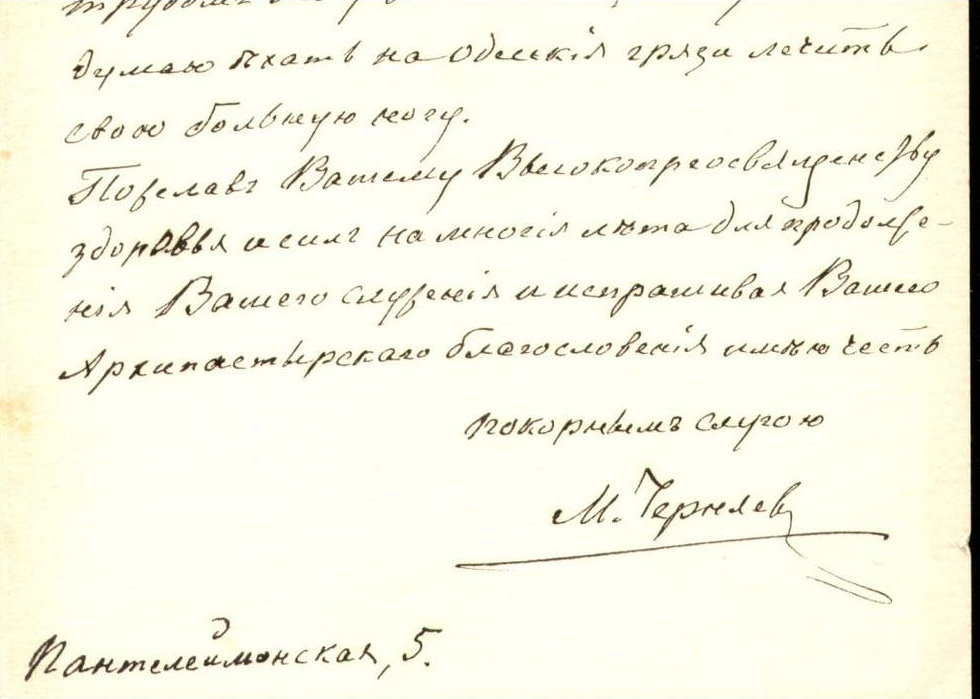 думаю ѣхать на Одесскія грязи лечить
свою больную ногу.
Пожелавъ Вашему Высокопреосвященству
здоровья и силъ на многія лѣта для продолже-
нія Вашего служенія и испрашивая Вашего
Архипастырскаго благословенія имѣю честь
покорнымъ слугою
М. Черняев
Пантелеймонская, 5.